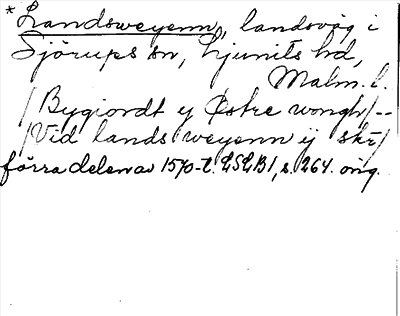 * Landsweyenn, landsväg i
Sjörups sn, Ljunits hd,
Malm. l.
/Bygiordt ij Østre wongh/--
/Vid lands weyenn ij skr/
förra delen av 1570-t. LSLB1, s. 264. orig.